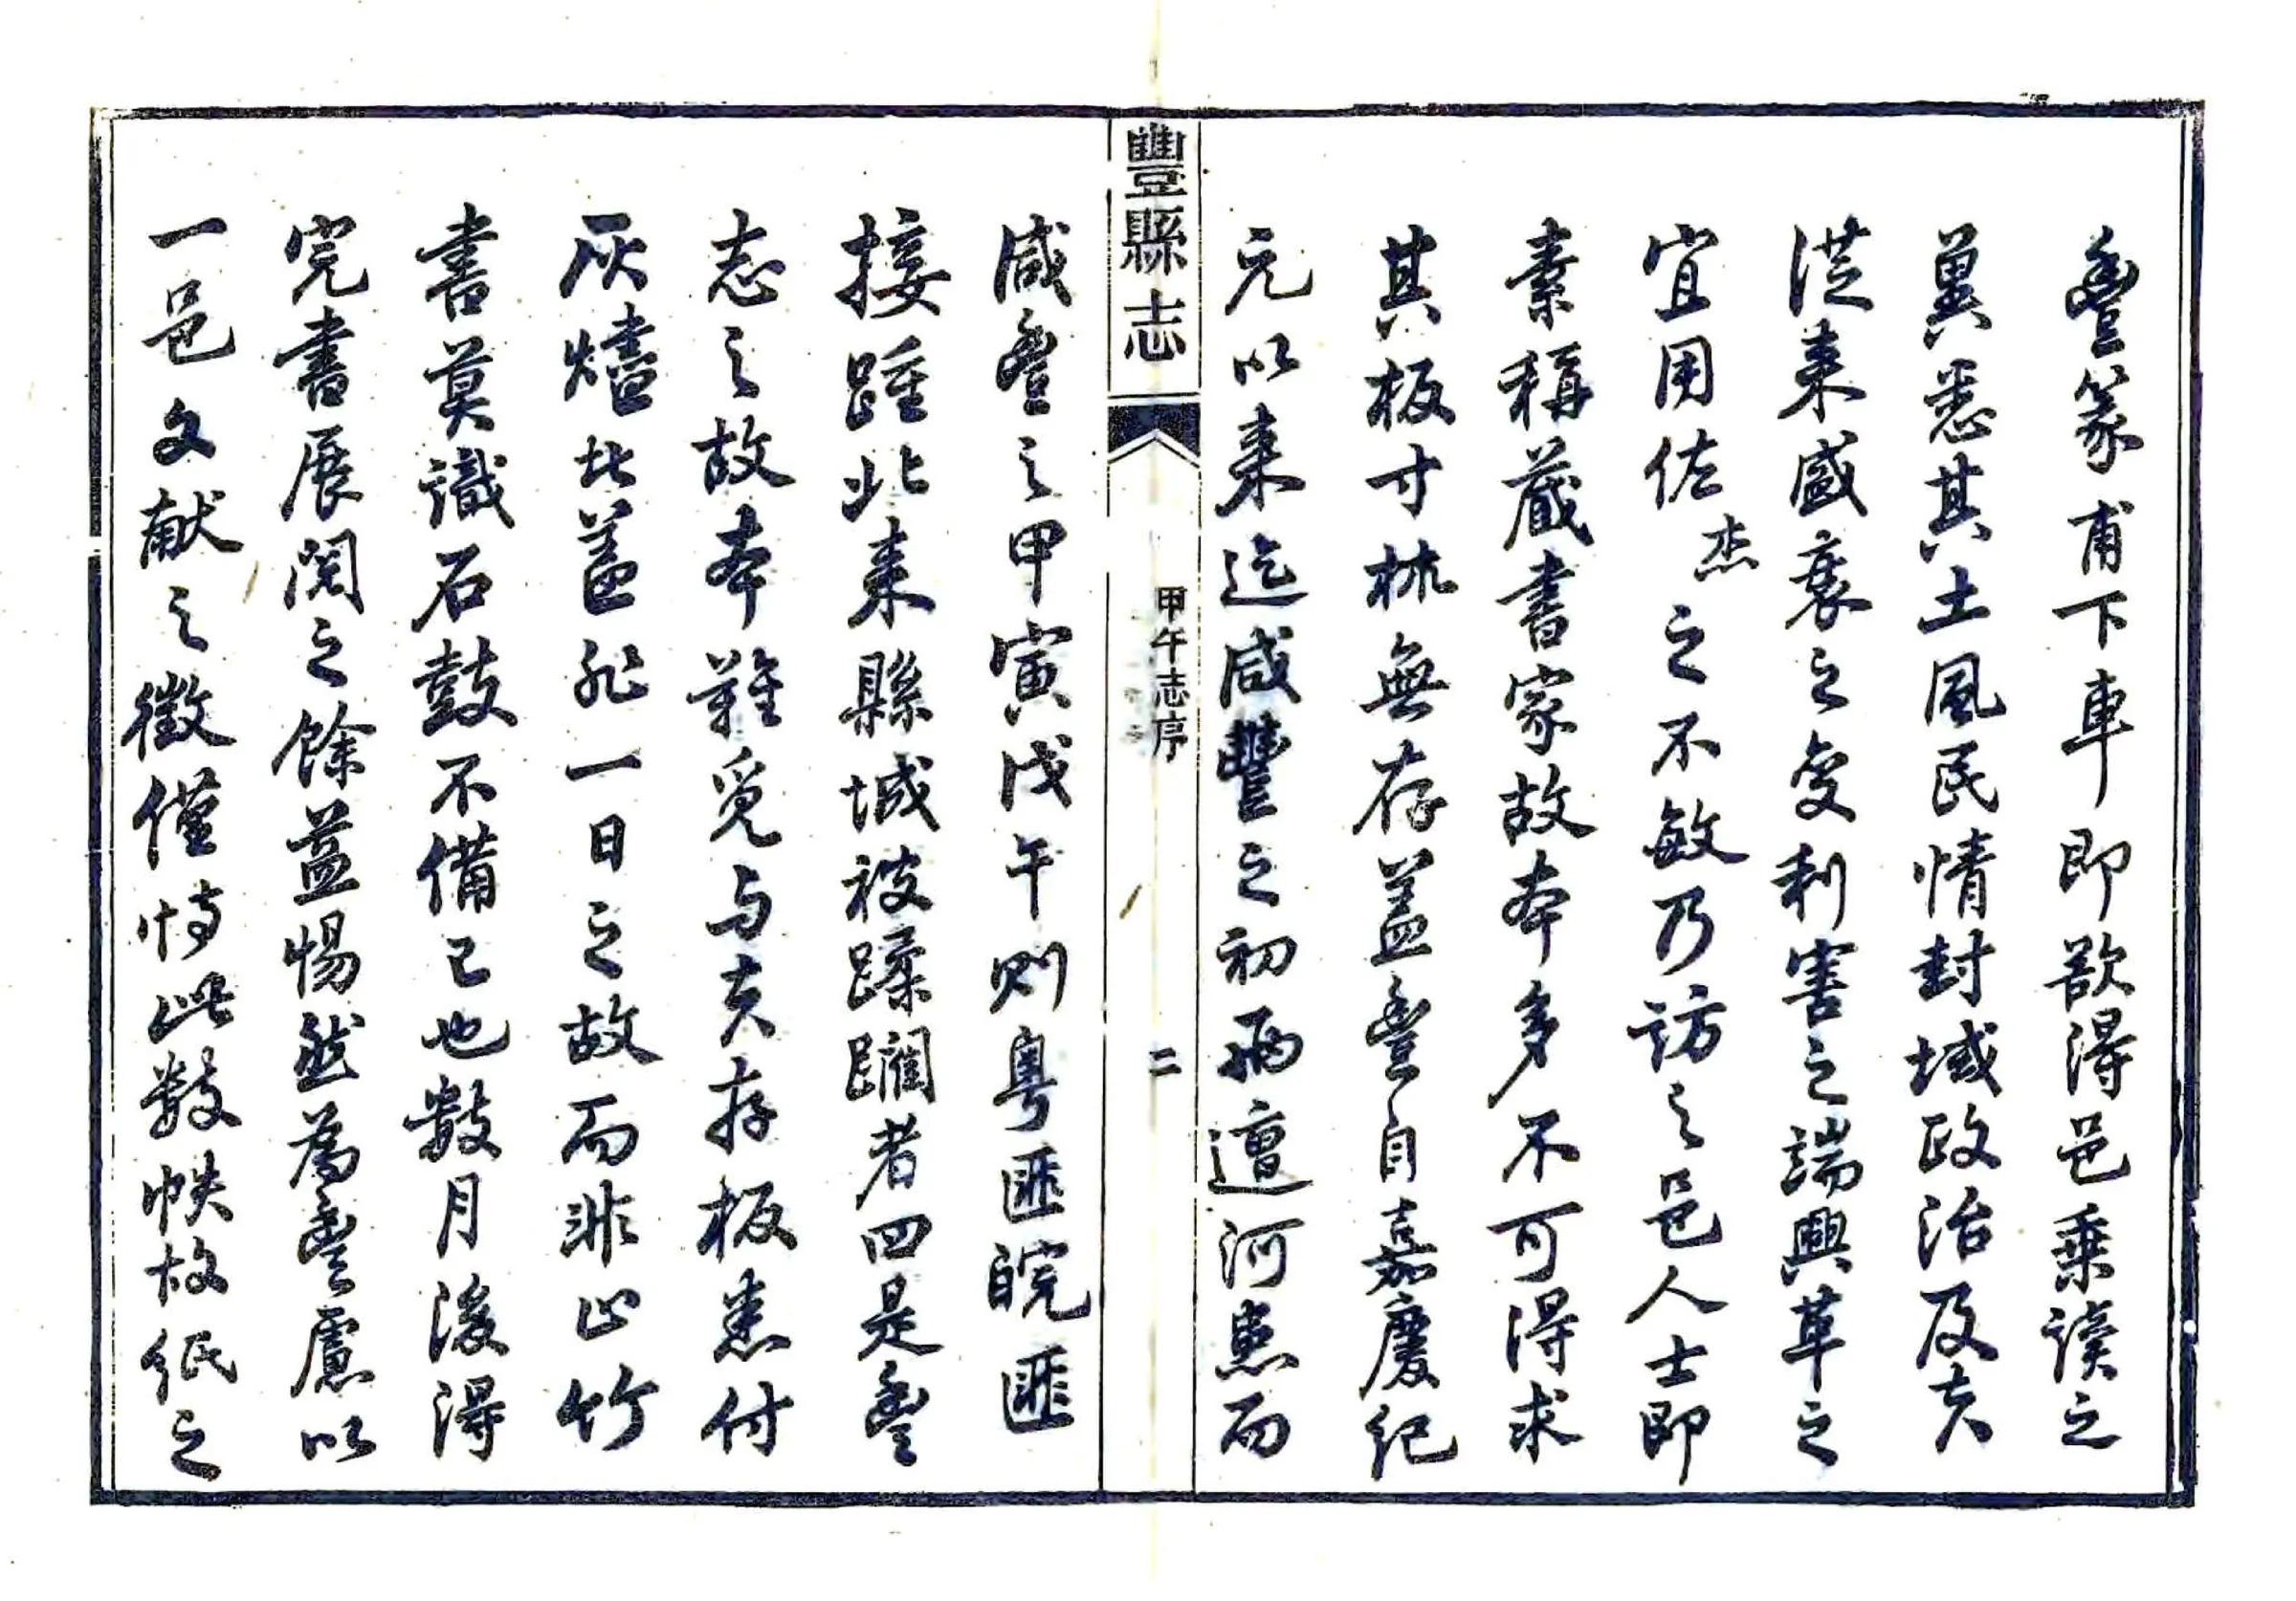 豐篆甫下車即欲得邑乘读之
冀悉其土風民情封域政治及夫
從来盛衰之变利害之端興革之
宜用佐杰之不敏乃访之邑人士即
素稱藏書家故本多不可得求
其板寸梳無存盖豐自嘉慶纪
元以来迄咸豐之初两遭河患而
豐縣志
甲午志序
二
咸豐之甲寅戊午则粤匪皖匪
接踵北来縣城被蹂躏者四是豐
志之故本難觅与夫存板悉付
灰燼比葢非一日之故而非止竹
書莫識石鼓不備已也数月後得
完書展閱之餘益惕然為豐慮以
一邑文献之徵僅恃此数帙故纸之